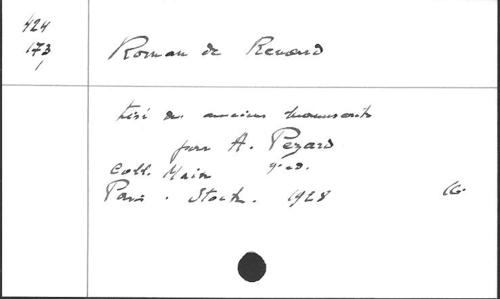 424
173
1
Roman de Renard
tiré des anciens manuscrits
par A. Pezard
Coll. Main g. ed.
Paris. Stock. 1928
16.